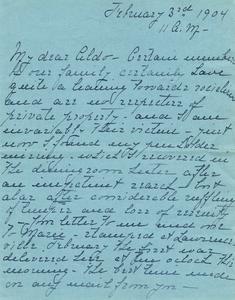 February 3rd 1904
11 A.M.
My dear Aldo - Certain members
of our family certainly have
quite a leaning towards socialism
and are no respecters of
private property - and I am
invariably their victim - just
now I found my pen holder
missing - which I recovered in
the dining room after
an search - but
alas after considerable ruffling
of temper and loss of serenity
- Your letter to me and one
to Marie - stamped at Lawrence-
ville February the first was
delivered here at o'clock this
morning - The best time made
on any mail from you -